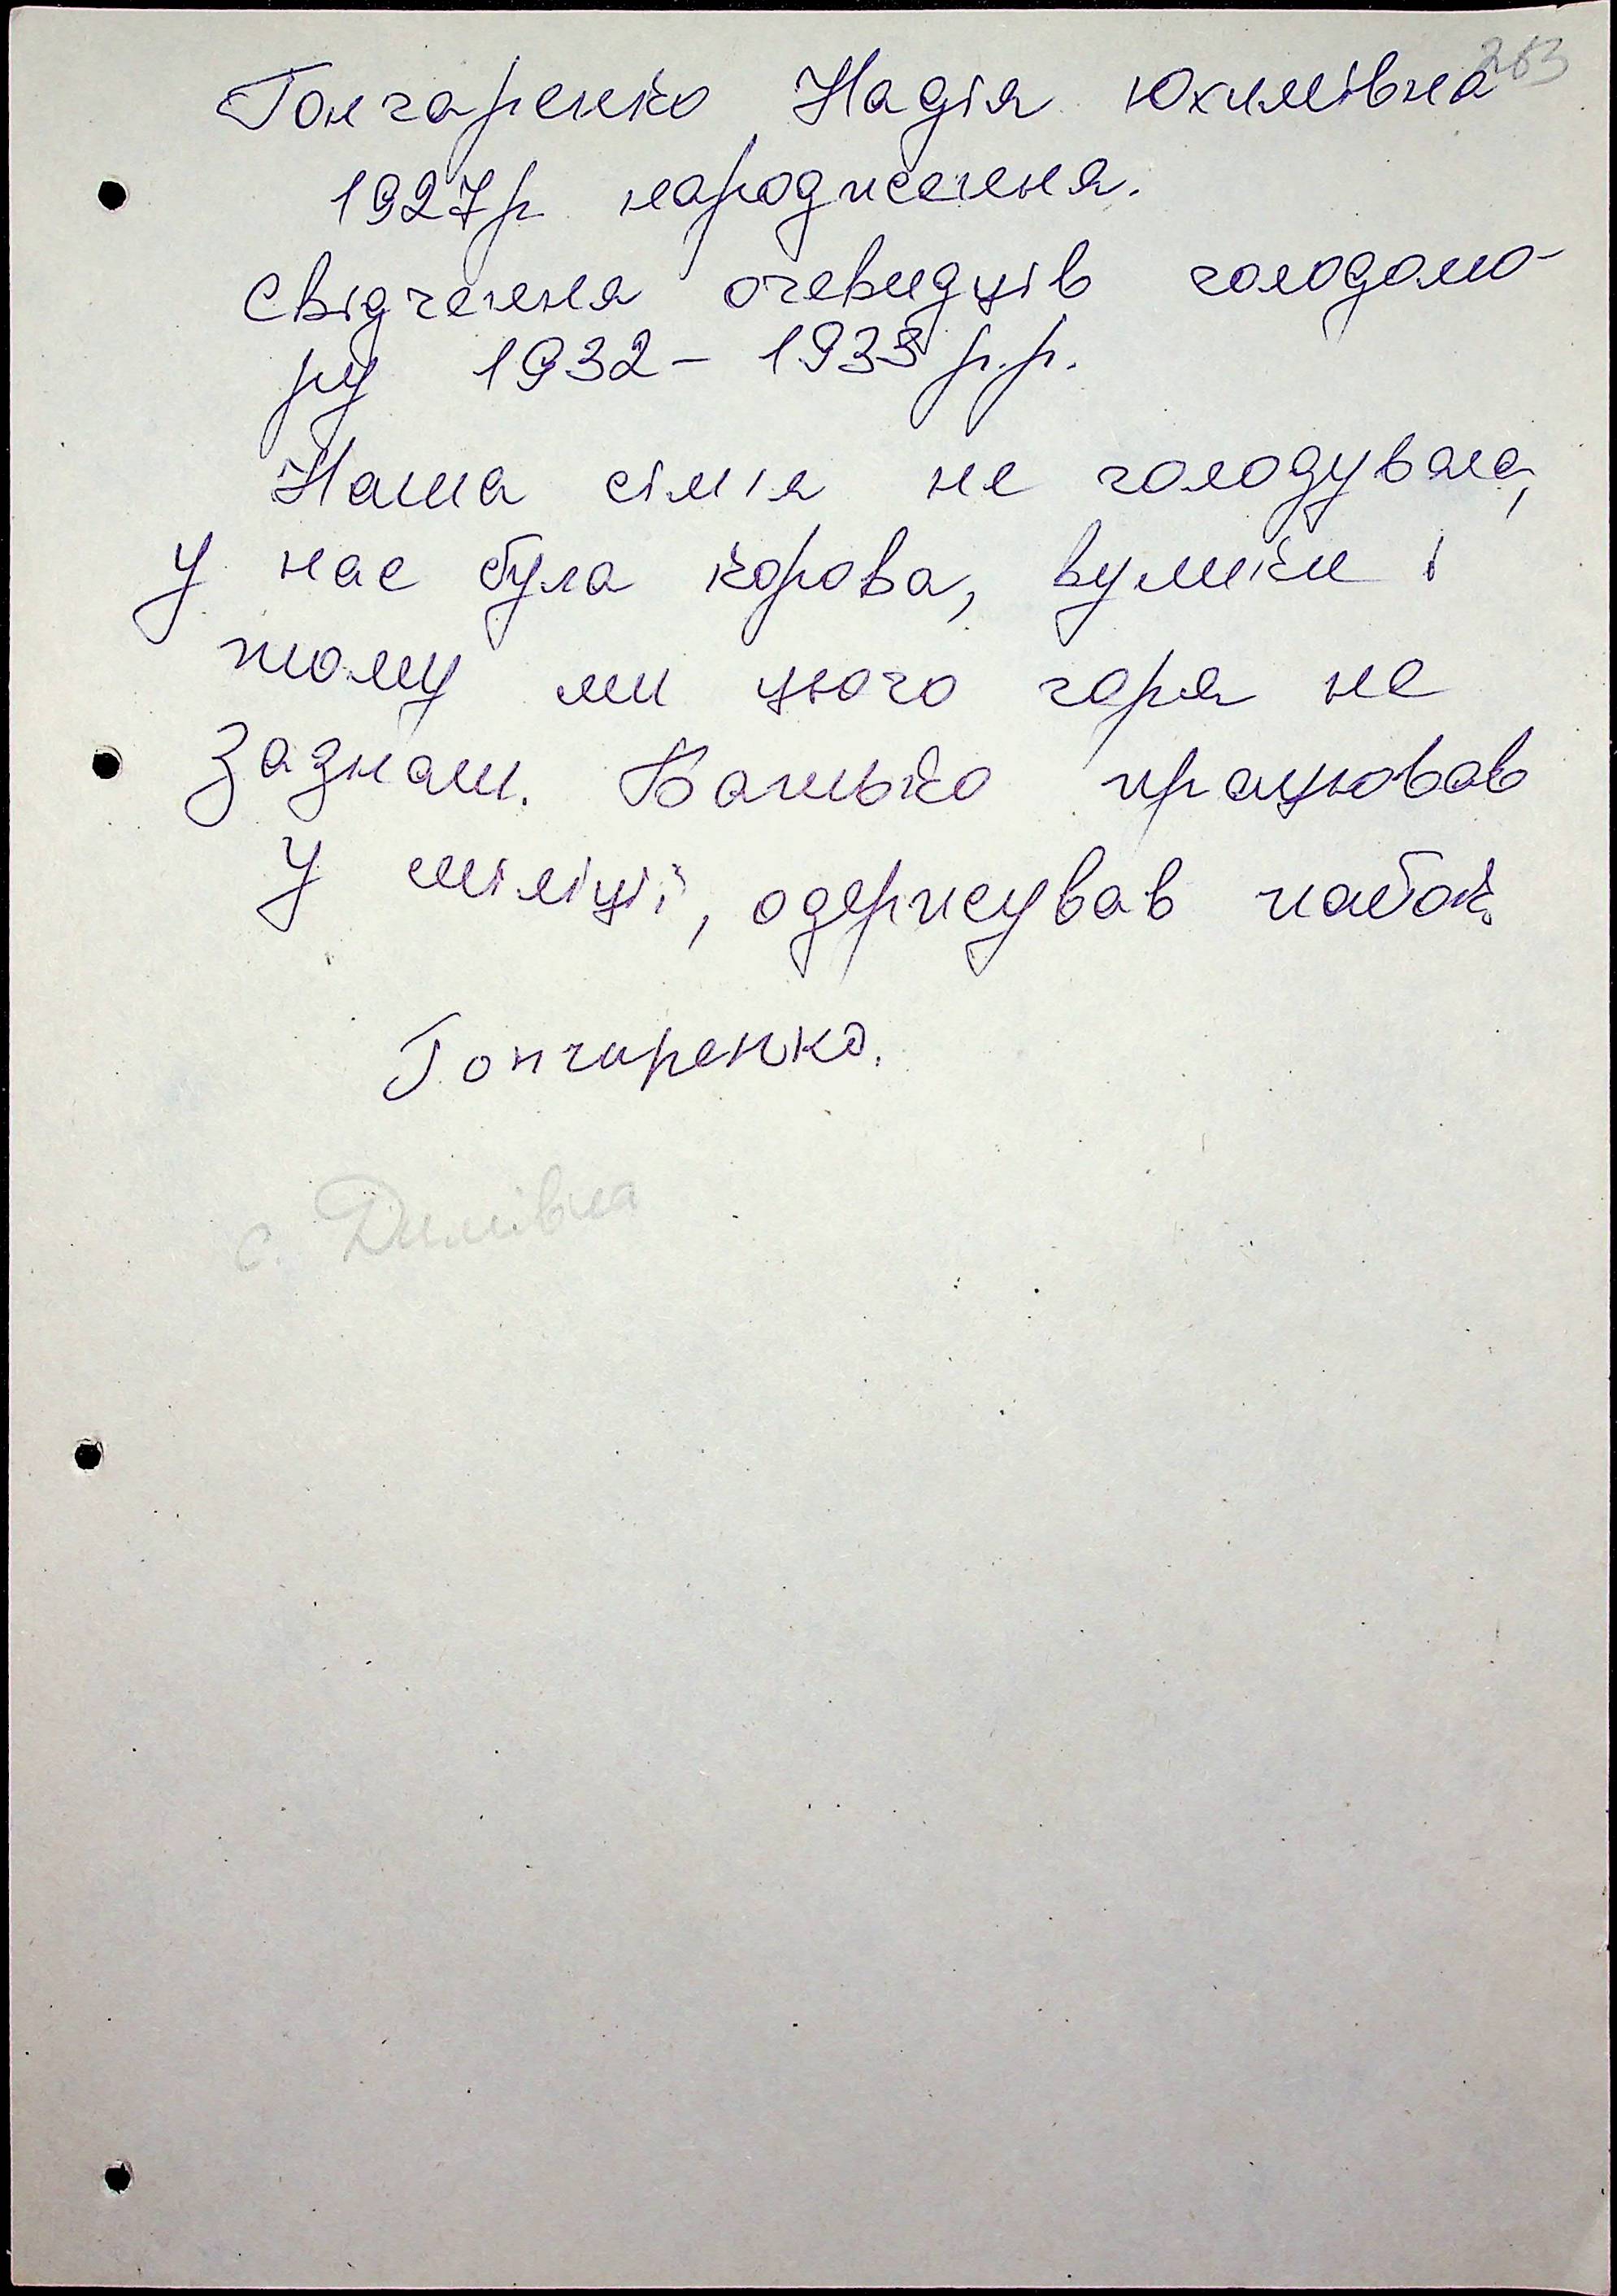 283
Гончаренко Надія Юхимівна
1927р народження.
Свідчення очевидців голодомо-
ру 1932 - 1933 р.р.
Наша сім'я не голодувала,
у нас була корова, вулики і
тому ми цього горя не
зазнали. Батько працював
у міліції, одержував пайок.
Гончаренко.
с. Димівка